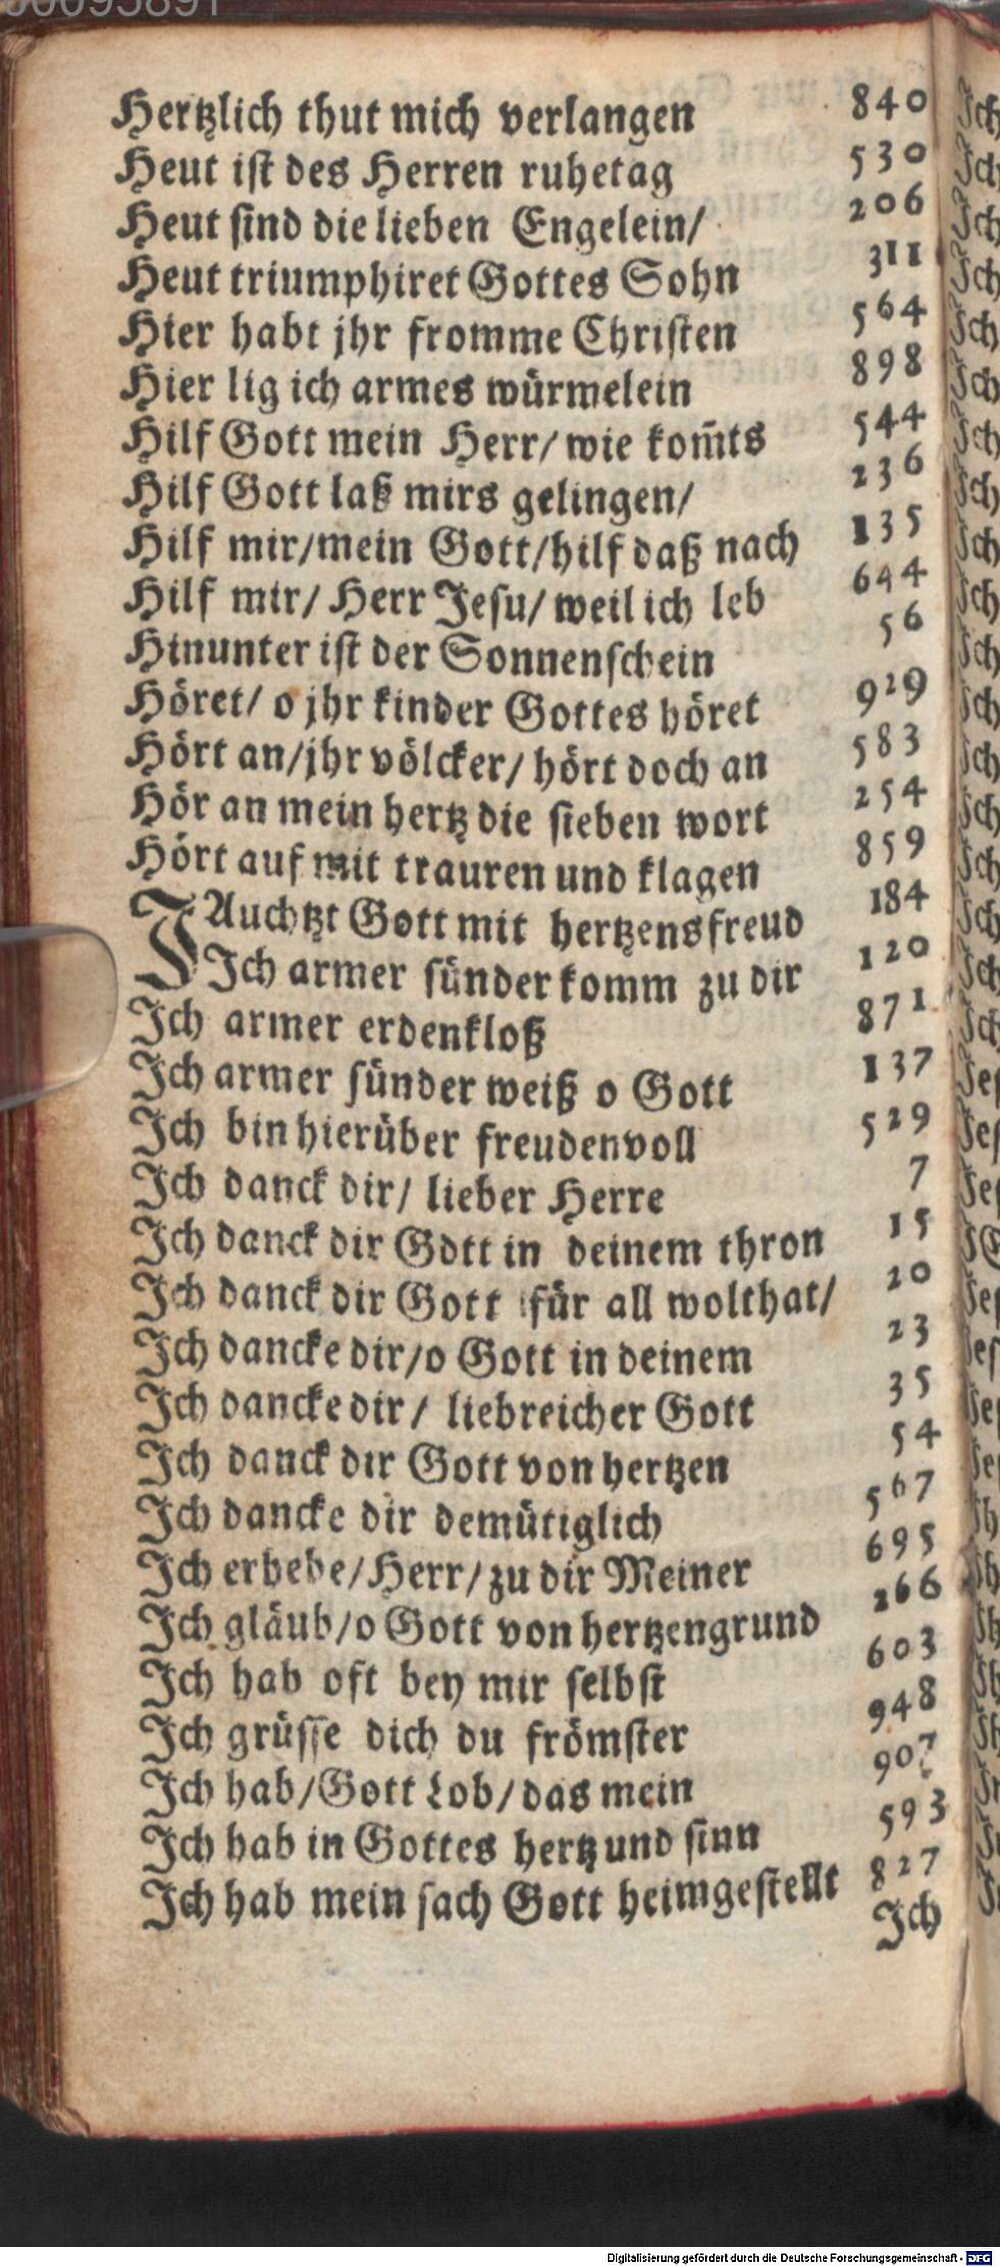 00095891
Hertzlich thut mich verlangen 840
Heut ist des Herren ruhetag 530
Heut sind die lieben Engelein/ 206
Heut triumphiret Gottes Sohn 311
Hier habt jhr fromme Christen 564
Hier lig ich armes würmelein 898
Hilf Gott mein Herr/ wie kom̃ts 544
Hilf Gott laß mirs gelingen/ 236
Hilf mir/mein Gott/hilf daß nach 135
Hilf mir/ Herr Jesu/ weil ich leb 644
Hinunter ist der Sonnenschein 56
Höret/ o jhr kinder Gottes höret 929
Hört an/jhr völcker/ hört doch an 583
Hör an mein hertz die sieben wort 254
Hört auf mit trauren und klagen 859
JAuchtzt Gott mit hertzensfreud 184
Ich armer sünder komm zu dir 120
Ich armer erdenkloß 871
Ich armer sünder weiß o Gott 137
Ich bin hierüber freudenvoll 529
Ich danck dir/ lieber Herre 7
Ich danck dir Gott in deinem thron 15
Ich danck dir Gott für all wolthat/ 20
Ich dancke dir/o Gott in deinem 23
Ich dancke dir/ liebreicher Gott 35
Ich danck dir Gott von hertzen 54
Ich dancke dir demütiglich 567
Ich erhebe/Herr/zu dir Meiner 695
Ich gläub/o Gott von hertzengrund 266
Ich hab oft bey mir selbst 603
Ich grüsse dich du frömster 948
Ich hab/Gott Lob/das mein 907
Ich hab in Gottes hertz und sinn 593
Ich hab mein sach Gott heimgestellt 827
Ich
Digitalisierung gefördert durch die Deutsche Forschungsgemeinschaft - DFG